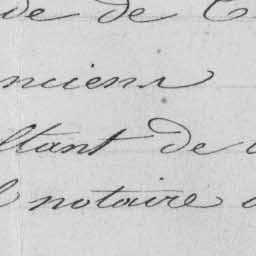 de de
ncienr
ltant de
notaire